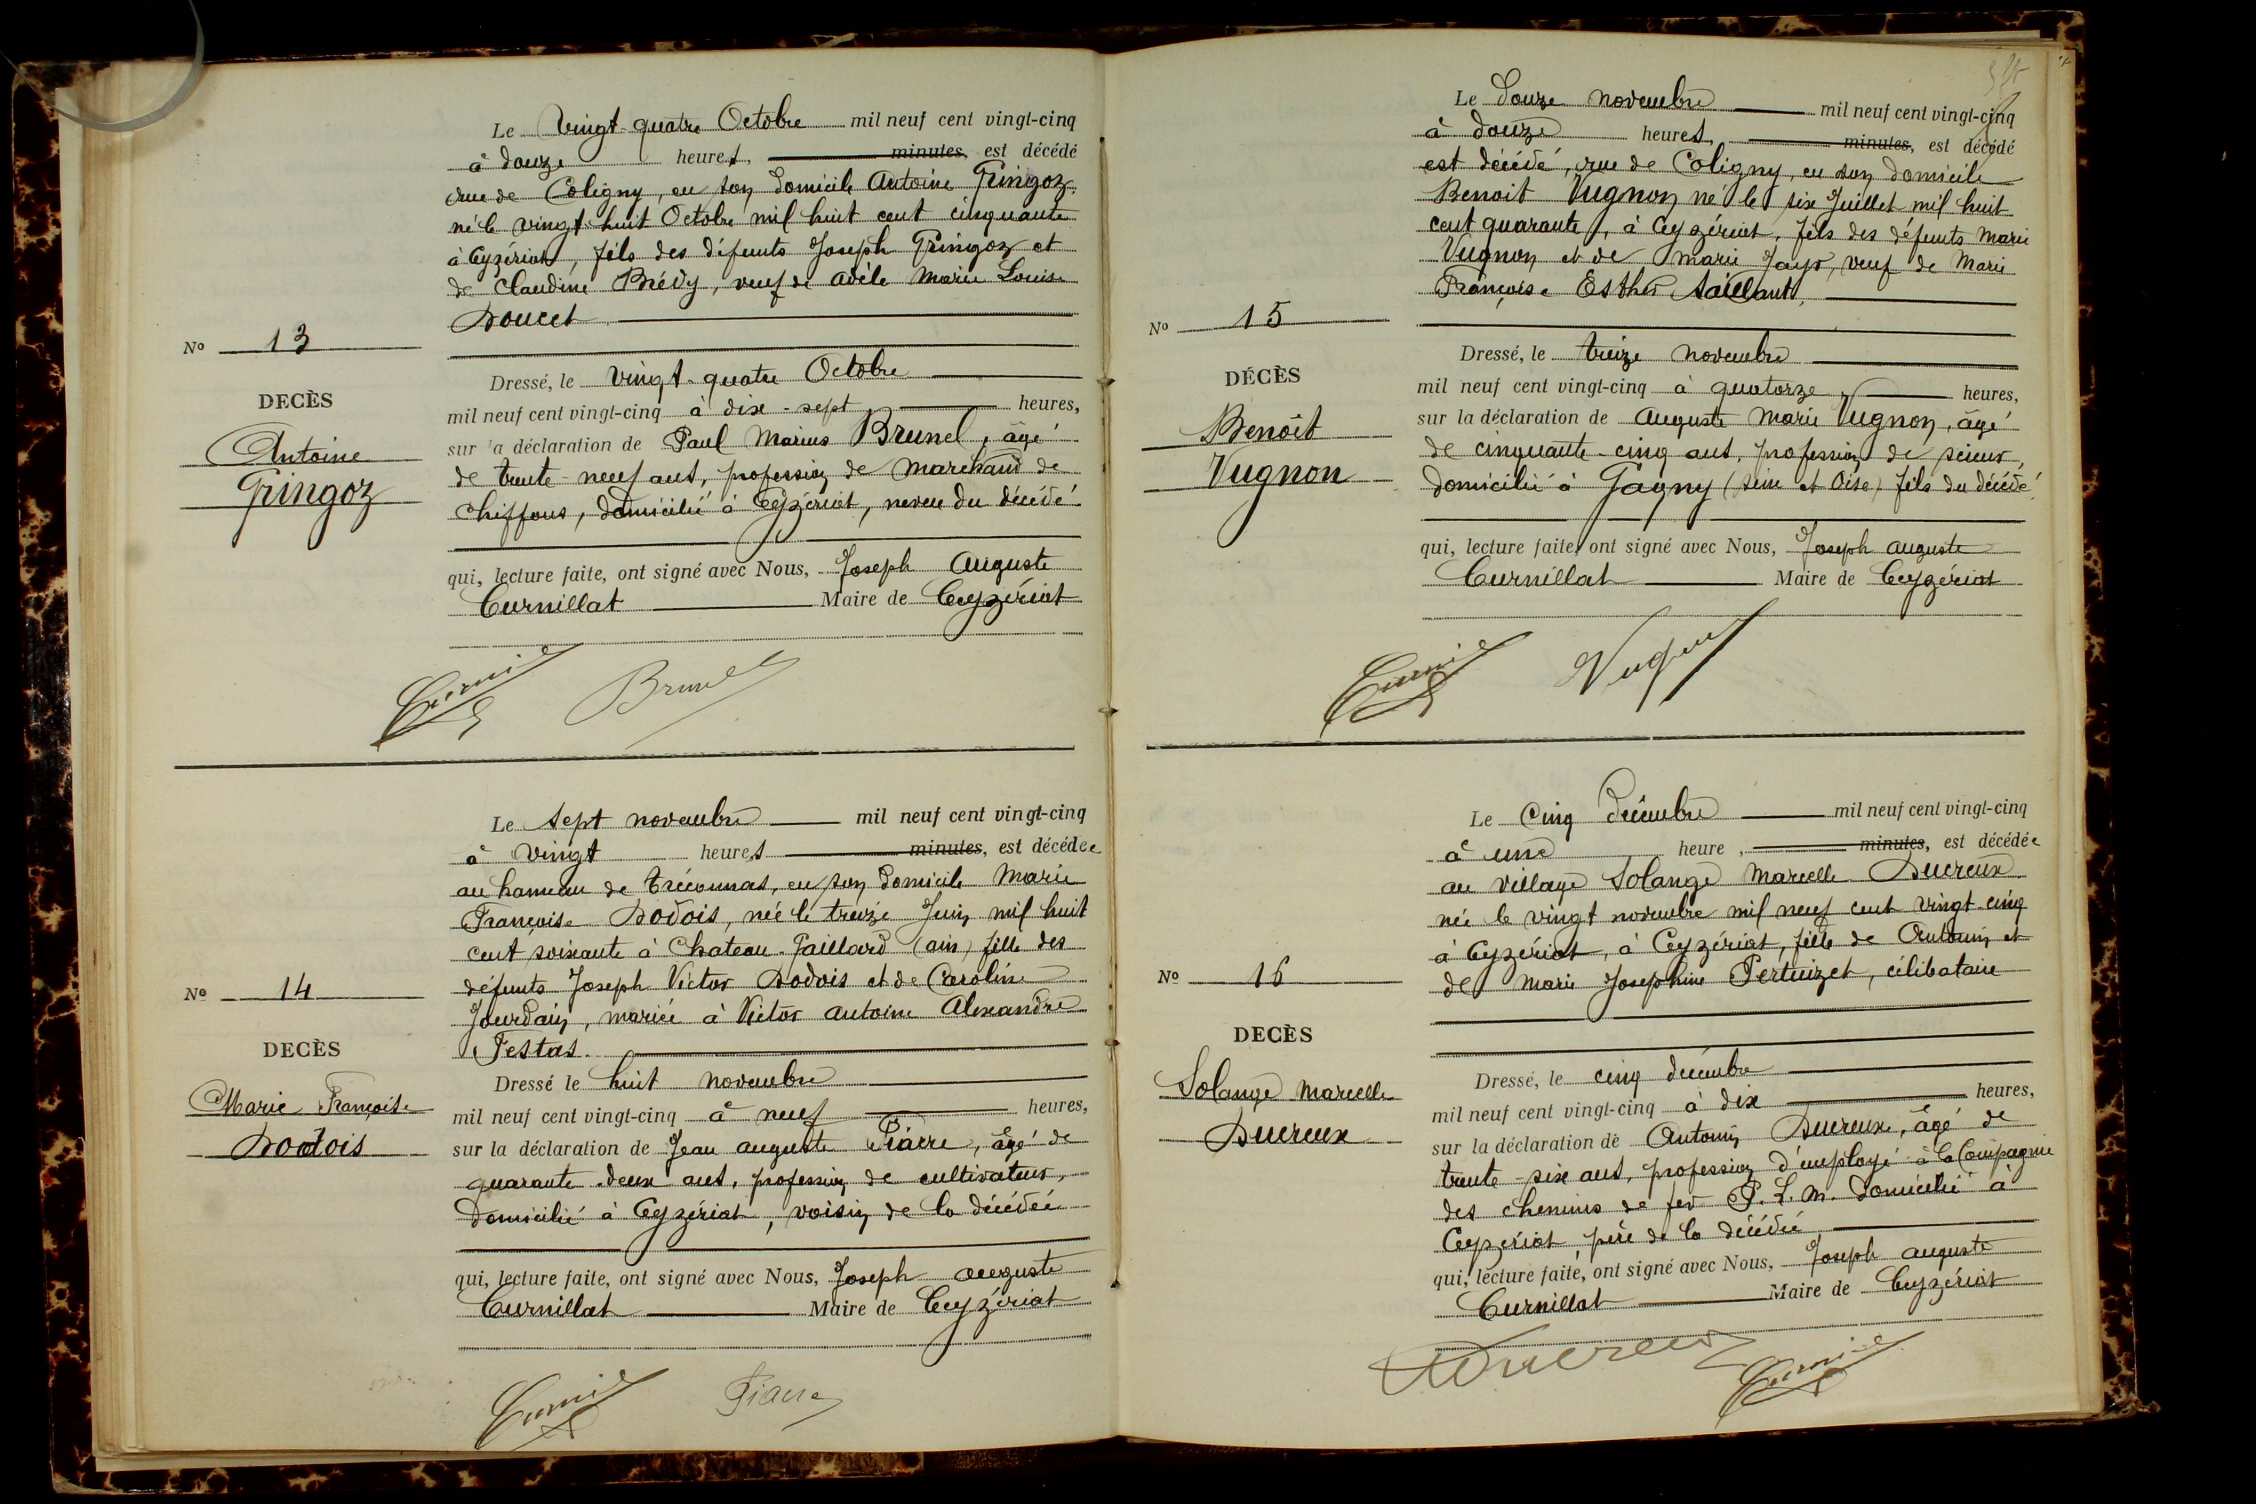 Le Vingt-quatre Octobre mil neuf cent vingt-cinq
à douze heures, minutes, est décédé
rue de Coligny, en son domicile Antoine Gringoz
né le vingt-huit Octobre mil huit cent cinquante
à Ceyzériat, fils des défunts Joseph Gringoz et
de Claudine Brévy, veuf de Adèle Marie Louise
Doucet
No 13
Dressé, le Vingt-quatre Octobre
DECÈS
mil neuf cent vingt-cinq à dix-sept heures,
sur la déclaration de Paul Marius Brunel, âgé
Antoine
de trente-neuf ans, profession de marchand de
Gringoz
chiffons, domicilié à Ceyzériat, neveu du décédé
qui, lecture faite, ont signé avec Nous, Joseph Auguste
Curnillat Maire de Ceyzériat
Brunel
Le sept novembre mil neuf cent vingt-cinq
à vingt heures minutes, est décédée
au hameau de Tréconnas, en son domicile Marie
Françoise Dodois, née le treize Juin mil huit
cent soixante à Chateau-Gaillard (ain) fille des
défunts Joseph Victor Dodois et de Caroline
No 14
Jourdain, mariée à Victor antoine Alexandre
Festas.
DECÈS
Dressé le huit novembre
Marie Françoise
mil neuf cent vingt-cinq à neuf heures,
Dodois
sur la déclaration de Jean auguste Piàcre, âgé de
quarante-deux ans, profession de cultivateur,
Domicilié à Ceyzériat, voisin de la décédée
qui, lecture faite, ont signé avec Nous, Joseph auguste
Curnillat Maire de Ceyzériat
Le Douze novembre mil neuf cent vingt-cinq
à douze heures, minutes, est décédé
est décédé, rue de Coligny, en son domicile
Benoit Vugnon né le six Juillet mil huit
cent quarante, à Ceyzériat, fils des défunts Marie
Vugnon et de Marie Jayr, veuf de Marie
Françoise Esther Saillant,
No 15
Dressé, le treize novembre
DÉCÈS
mil neuf cent vingt-cinq à quatorze heures,
sur la déclaration de Auguste Marie Vugnon, âgé
Benoît
de cinquante-cinq ans, profession de scieur,
Vugnon
domicilié à Gagny (Seine et Oise) fils du décédé
qui, lecture faite, ont signé avec Nous, Joseph auguste
Curnillat Maire de Ceyzériat
Le Cinq Décembre mil neuf cent vingt-cinq
à une heure, minutes, est décédée
au village Solange Marcelle Ducreux
née le vingt novembre mil neuf cent vingt-cinq
à Ceyzériat, à Ceyzériat, fille de Antonin et
de Marie Josephine Pertuizet, célibataire
No 16
DECÈS
Dressé, le cinq décembre
Solange Marcelle
mil neuf cent vingt-cinq à dix heures,
Ducreux
sur la déclaration de Antonin Ducreux, âgé de
trente-six ans, profession d'employé à la Compagnie
des chemins de fer P. L. M. domicilié à
Ceyzériat, père de la décédée
qui, lecture faite, ont signé avec Nous, Joseph auguste
Curnillat Maire de Ceyzériat
Ducreux